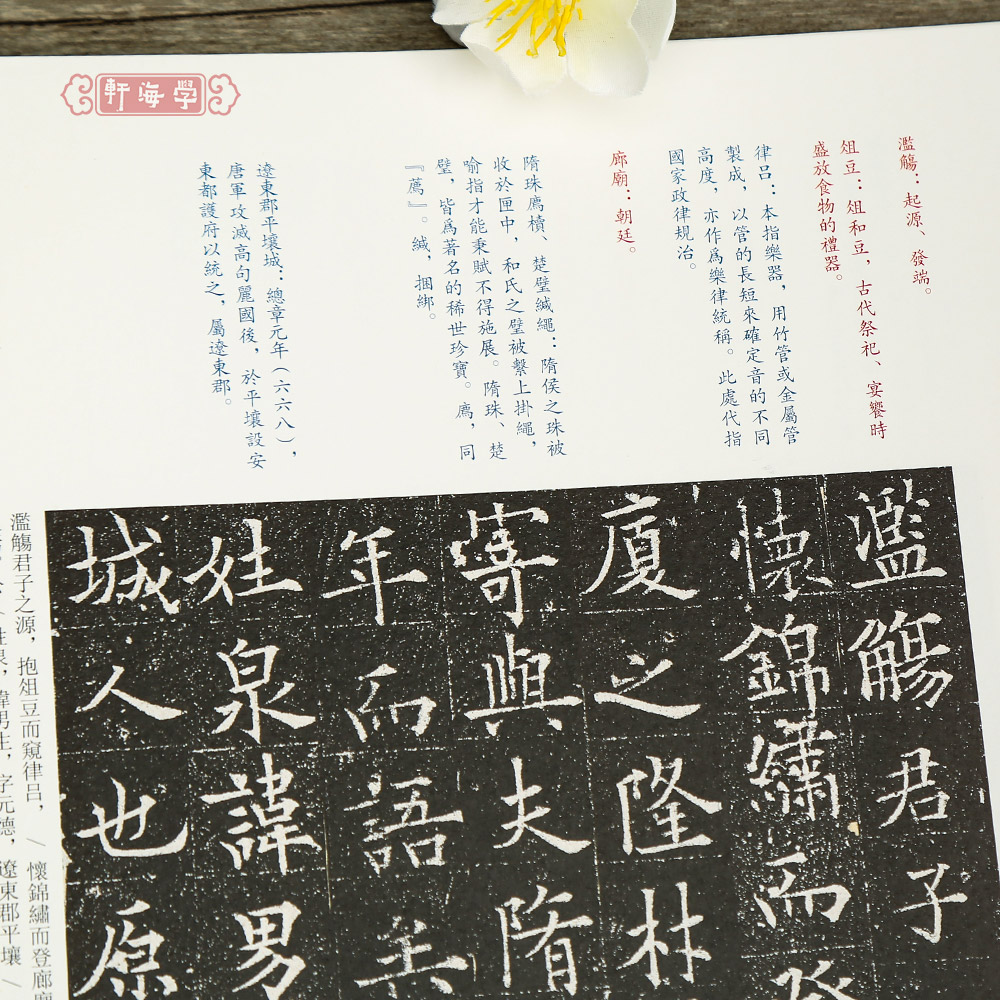 學海軒
濫觴：起源、發端。
俎豆：俎和豆，古代祭祀、宴饗時
盛放食物的禮器。
律呂：本指樂器，用竹管或金屬管
製成，以管的長短來確定音的不同
高度，亦作爲樂律統稱。此處代指
國家政律規治。
廊廟：朝廷。
隋珠薦櫝、楚璧緘繩：隋侯之珠被
收於匣中，和氏之璧被繫上掛繩，
喻指才能秉賦不得施展。隋珠、楚
璧，皆爲著名的稀世珍寶。薦，同
『薦』。緘，捆綁。
遼東郡平壤城：總章元年（六六八），
唐軍攻滅高句麗國後，於平壤設安
東都護府以統之，屬遼東郡。
濫觴君子
懷錦繡而登
廈之隆林
寄與夫隋
年而語矣
姓泉諱男
城人也原
濫觴君子之源，抱俎豆而窺律呂，/ 懷錦繡而登廊廟
諱男生，字元德，遼東郡平壤